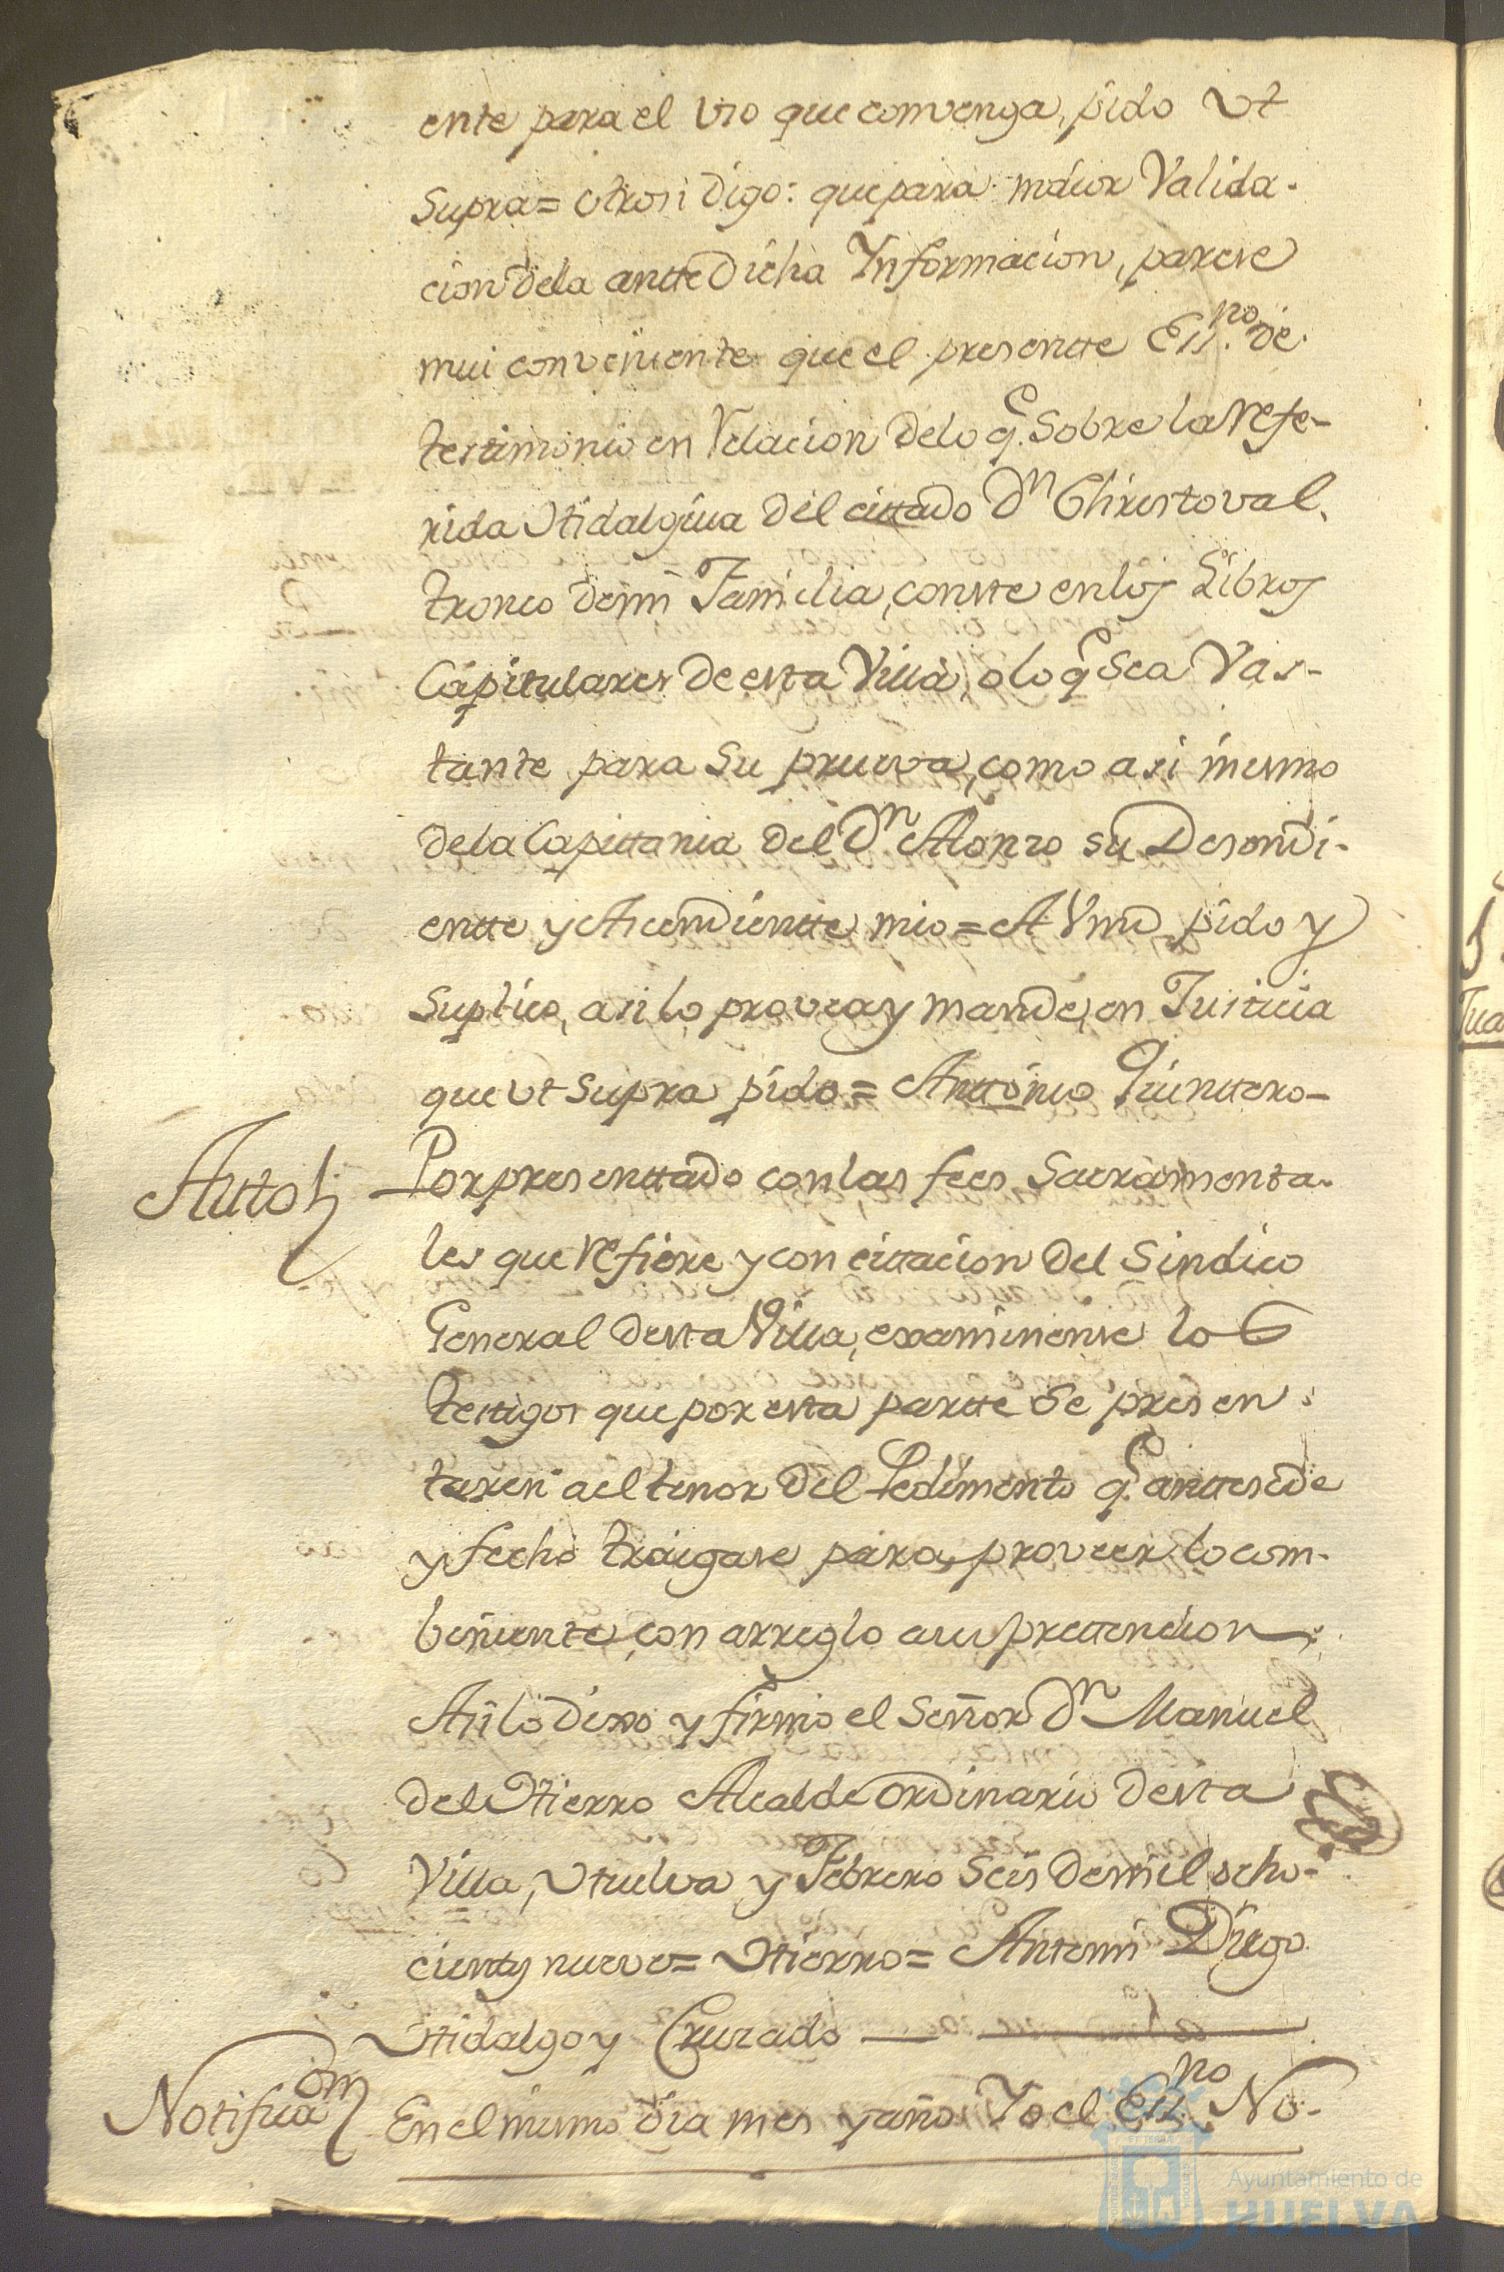 ente para el uso que convenga, pido ut
Supra= otrosi Digo: que para maior Valida-
cion dela antte Dicha Ynformacion, parese
mui conveniente que el presentte Ess.no de
testimonio en relacion delo q.e Sobre la refe-
rida Hidalguia del cittado Dn Christoval,
tronco demi Familia, conste en los Libros
Capitulares de esta Villa, o lo q.e sea Vas-
tante para su prueva, como asi mesmo
dela Capittania del Dn Alonzo su Desendi-
entte y Asendientte mio = A Vmd pido y
Suplico, asi lo provea y mande, en Justicia
que ut supra pido = Anttonio Quinttero-
Auto
Por presenttado con las fees Sacramenta-
les que refiere y con cittacion del Sindico
General desta Villa, examinense los
testigos que por esta partte se presen-
taren a el tenor del Pedimento q.e anttesede
y fecho traigase para proveer lo com-
beniente, con arreglo a su prettencion
Asi lo dixo y firmo el Señor Dn Manuel
del Hierro Alcalde ordinario desta
Villa, Huelva y Febrero Seis de mil ocho-
cientos nueve = Hierro = Antemi Diego
Hidalgo y Cruzado
Notificaom
En el mismo dia mes y año Yo el Ess.no No-
Ayuntamiento de
HUELVA